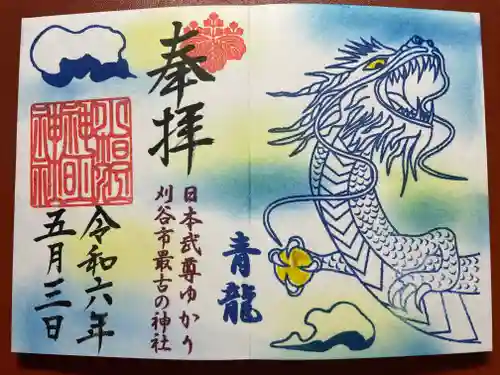 奉拝
日本武尊ゆかり
刈谷市最古の神社
小垣江
神明
神社
令和六年
五月三日
青龍